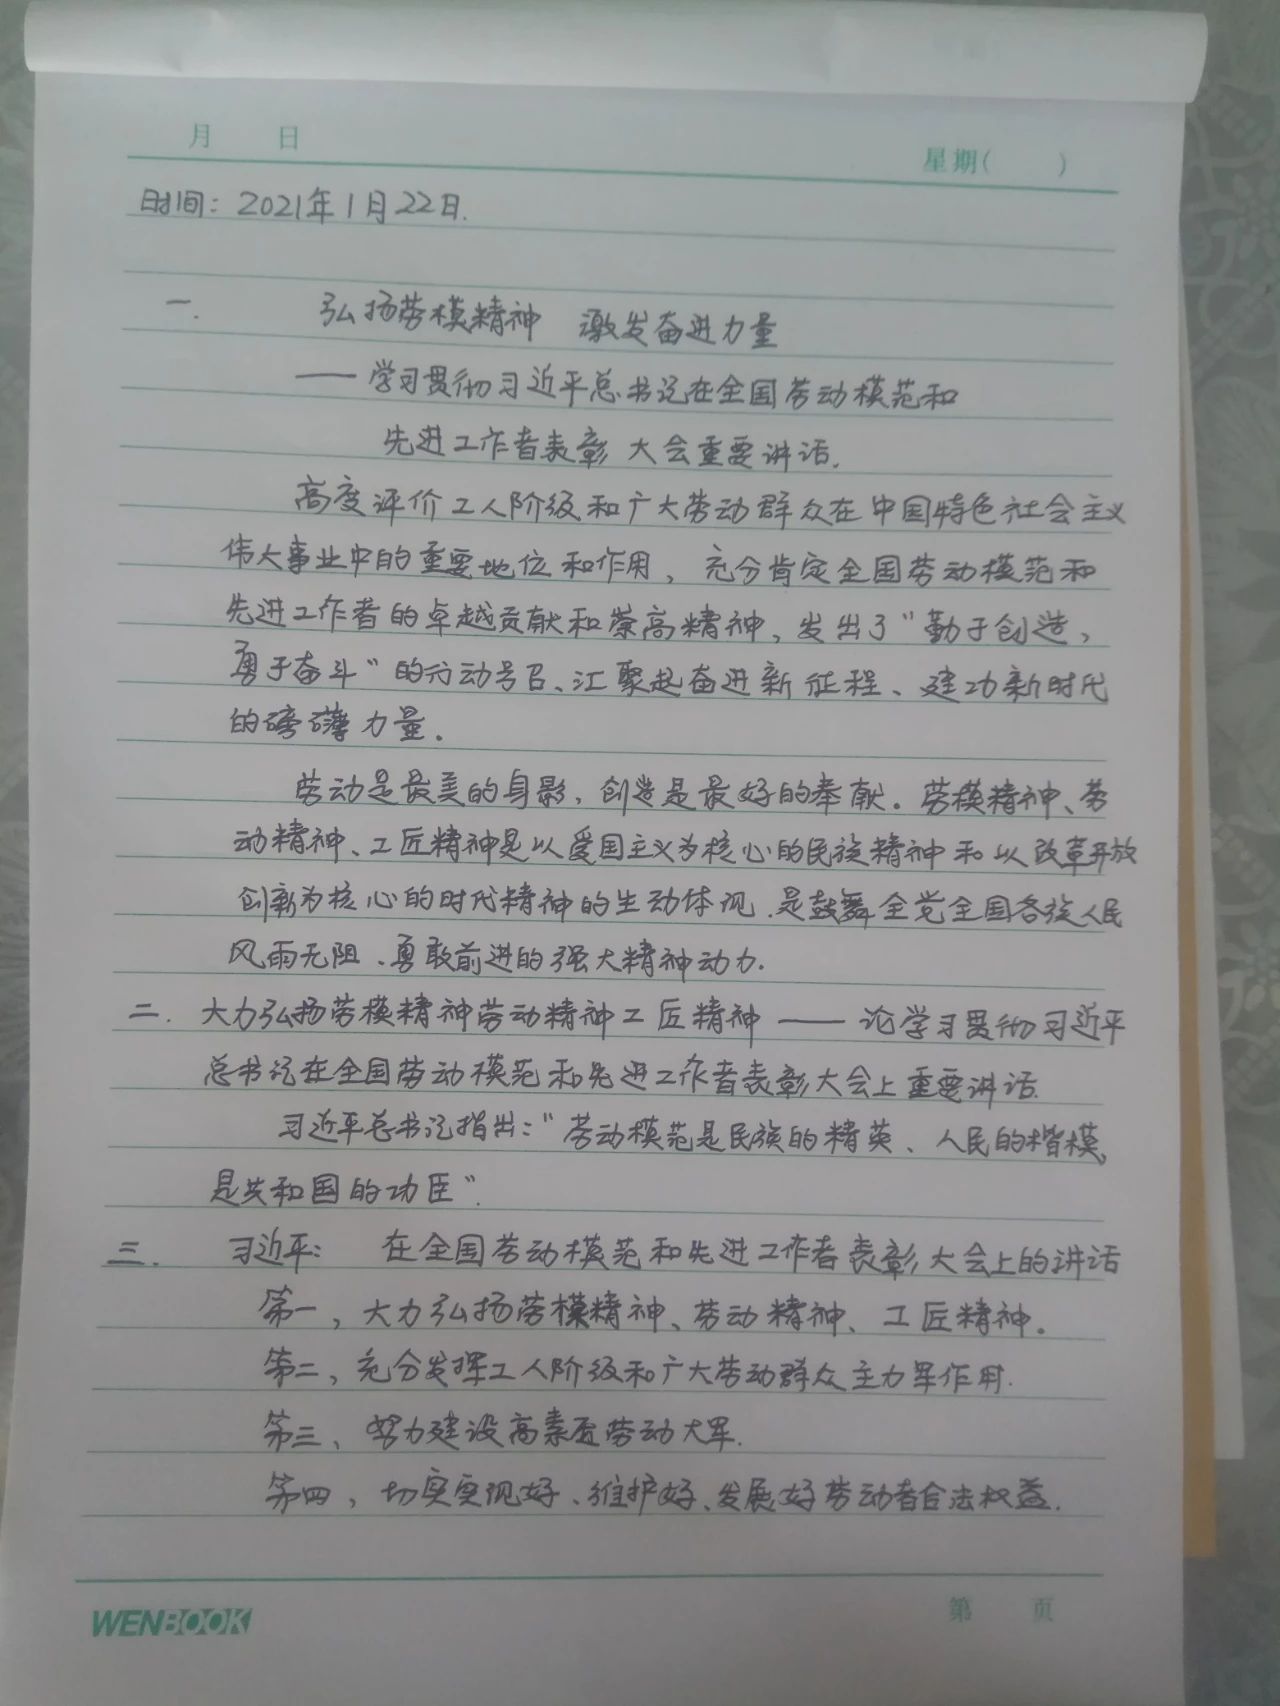 月 日
星期( )
时间：2021年1月22日.
一. 弘扬劳模精神 激发奋进力量
——学习贯彻习近平总书记在全国劳动模范和
先进工作者表彰大会重要讲话.
高度评价工人阶级和广大劳动群众在中国特色社会主义
伟大事业中的重要地位和作用，充分肯定全国劳动模范和
先进工作者的卓越贡献和崇高精神，发出了“勤于创造，
勇于奋斗”的行动号召、汇聚起奋进新征程、建功新时代
的磅礴力量.
劳动是最美的身影，创造是最好的奉献。劳模精神、劳
动精神、工匠精神是以爱国主义为核心的民族精神和以改革开放
创新为核心的时代精神的生动体现、是鼓舞全党全国各族人民
风雨无阻、勇敢前进的强大精神动力.
二. 大力弘扬劳模精神劳动精神工匠精神——论学习贯彻习近平
总书记在全国劳动模范和先进工作者表彰大会上重要讲话.
习近平总书记指出：“劳动模范是民族的精英、人民的楷模、
是共和国的功臣”.
三. 习近平： 在全国劳动模范和先进工作者表彰大会上的讲话
第一，大力弘扬劳模精神、劳动精神、工匠精神。
第二、充分发挥工人阶级和广大劳动群众主力军作用.
第三、努力建设高素质劳动大军.
第四、切实实现好、维护好、发展好劳动者合法权益.
WENBOOK
第 页